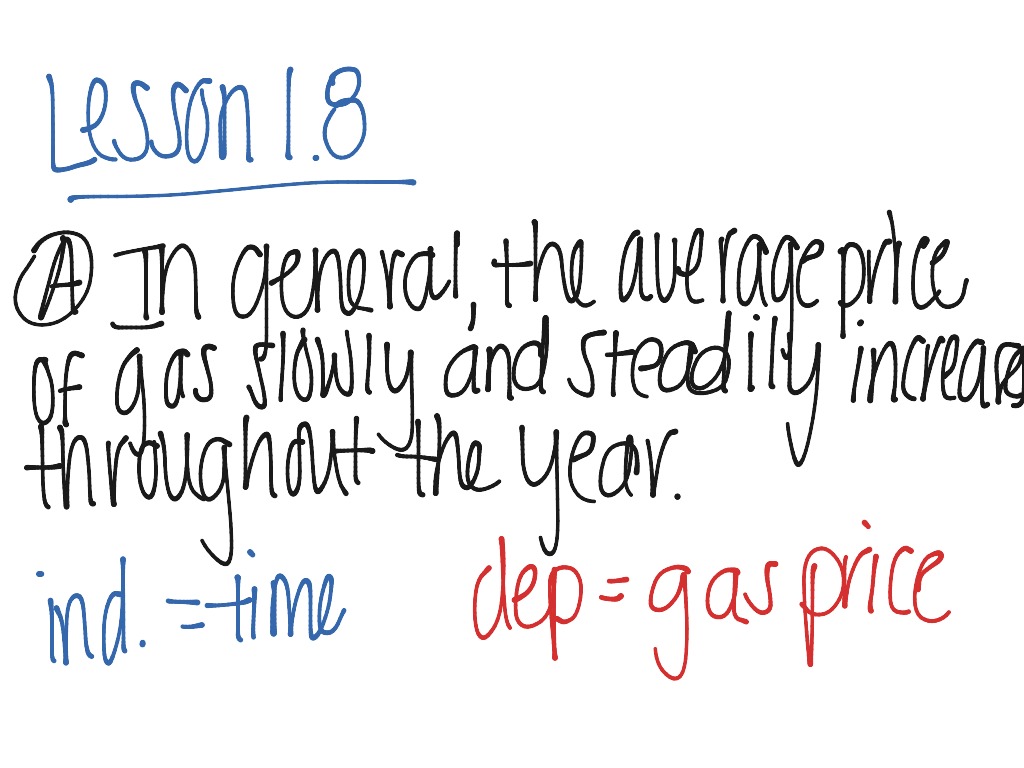 Lesson 1.8
A In general, the average price
of gas slowly and steadily increase
throughout the year.
ind. = time dep = gas price